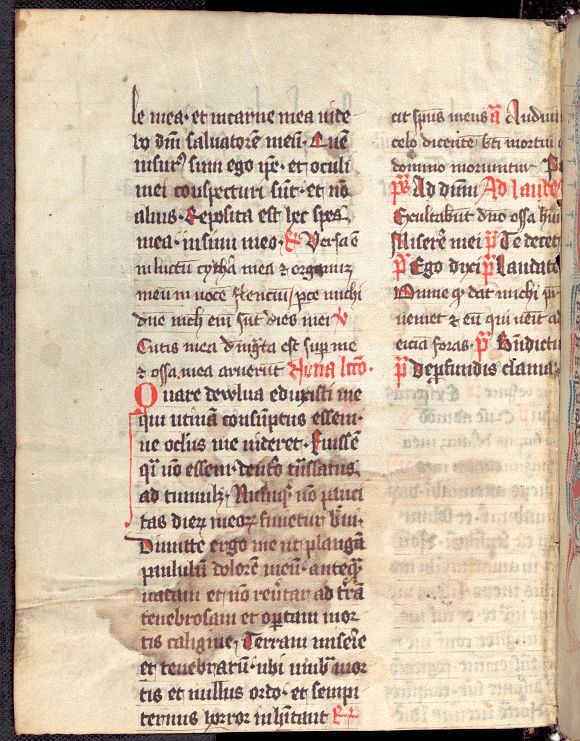 le mea · et in carne mea vide
bo dm̄ salvatorē meū · Quē
visur⁹ sum ego ip̄e · et oculi
mei conspecturi sūt · et nō
alius · Reposita est hec spes
mea · in sinu meo · R̃ Versa ē
in luctum cythā mea & organū
meū in voce flenciū / pce michi
dn̄e nich̄ eni sūt dies mei V
Cutis mea
& ossa mea aruerūt Nona lcō ·
Quare de vulva eduxisti me
qui utinā consūptus essem ·
ne oclus me videret · Fuissē
q̄i nō essem · de utō trāslatus
ad tumulū · Nūquid nō pauci
tas dierꝝ meorꝝ finietur bͮi ·
Dimitte ergo me ut plangā
paululū dolorē meū · anteq̄
vadam et nō reūtar ad trā
tenebrosam et optam mor
tis caligine · Terram miserie
et tenebrarū · ubi umb mor
tis et nullus ordo · et sempi
ternus horror inhitant R̃
cit spūs meus a͞ Audivi
celo dicentē bti mortui q
domino moriuntur
p̄s Ad dnm Ad laude
Exultabūt dn̄o ossa hu
Miserē mei p̄ Te decet
p̄ Ego dixi p̄ laudate
Omne q̄ dat michi p̄r
veniet & eū qui venit ad
eiciā foras · p̄ Bndictu
p̄ De pfundis clama